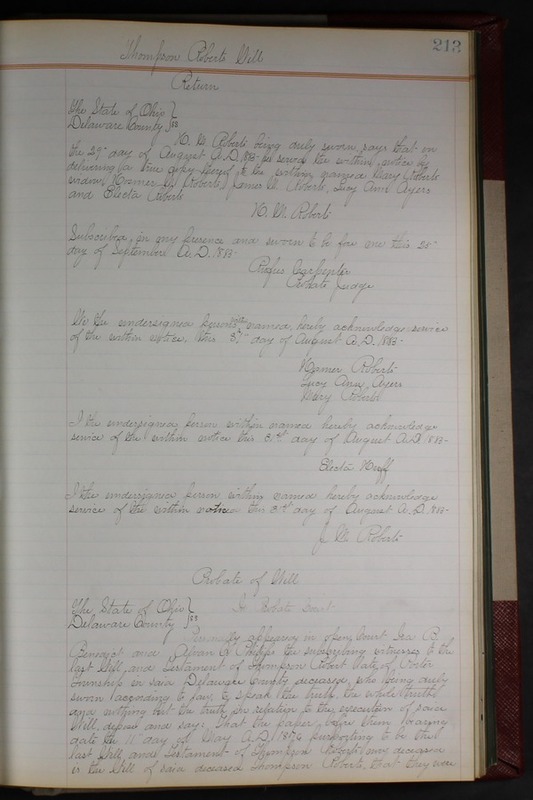 213
Thompson Roberts Will
Return
The State of Ohio }
Delaware County } ss
Roberts being duly sworn, says that on
the 29" day of August A.D. 188 he served the within notice by
delivering a true copy thereof to the within named Mary Roberts
widow, Roberts, Roberts, Lucy Ann Ayers
and Electa
Roberts
Subscribed in my presence and sworn to before me this 25"
day of September A.D. 188
Rufus Carpenter
Probate Judge
We the undersigned persons within named, hereby acknowledge service
of the within notice, this 31st day of August A.D. 188
Roberts
Lucy Ann Ayers
Mary
I the undersigned person within named hereby acknowledge
service of the within notice this 31st day of August A.D. 188
Electa Huff
I the undersigned person within named hereby acknowledge
service of the within notice this 31st day of August A.D. 188
J Roberts
Probate of Will
The State of Ohio } In Probate Court
Delaware County } ss
Personally appearing in open Court Ira B.
Benedict and Phillips the subscribing witnesses to the
last Will and Testament of Thompson late of
Township in said Delaware County deceased, who being duly
sworn according to law to speak the truth the whole truth
and nothing but the truth in relation to the execution of said
Will, depose and say: That the paper before them bearing
date the 11 day of May A.D. 1874 purporting to be the
last Will and Testament of Thompson Roberts now deceased
is the Will of said deceased Thompson Roberts, that they were